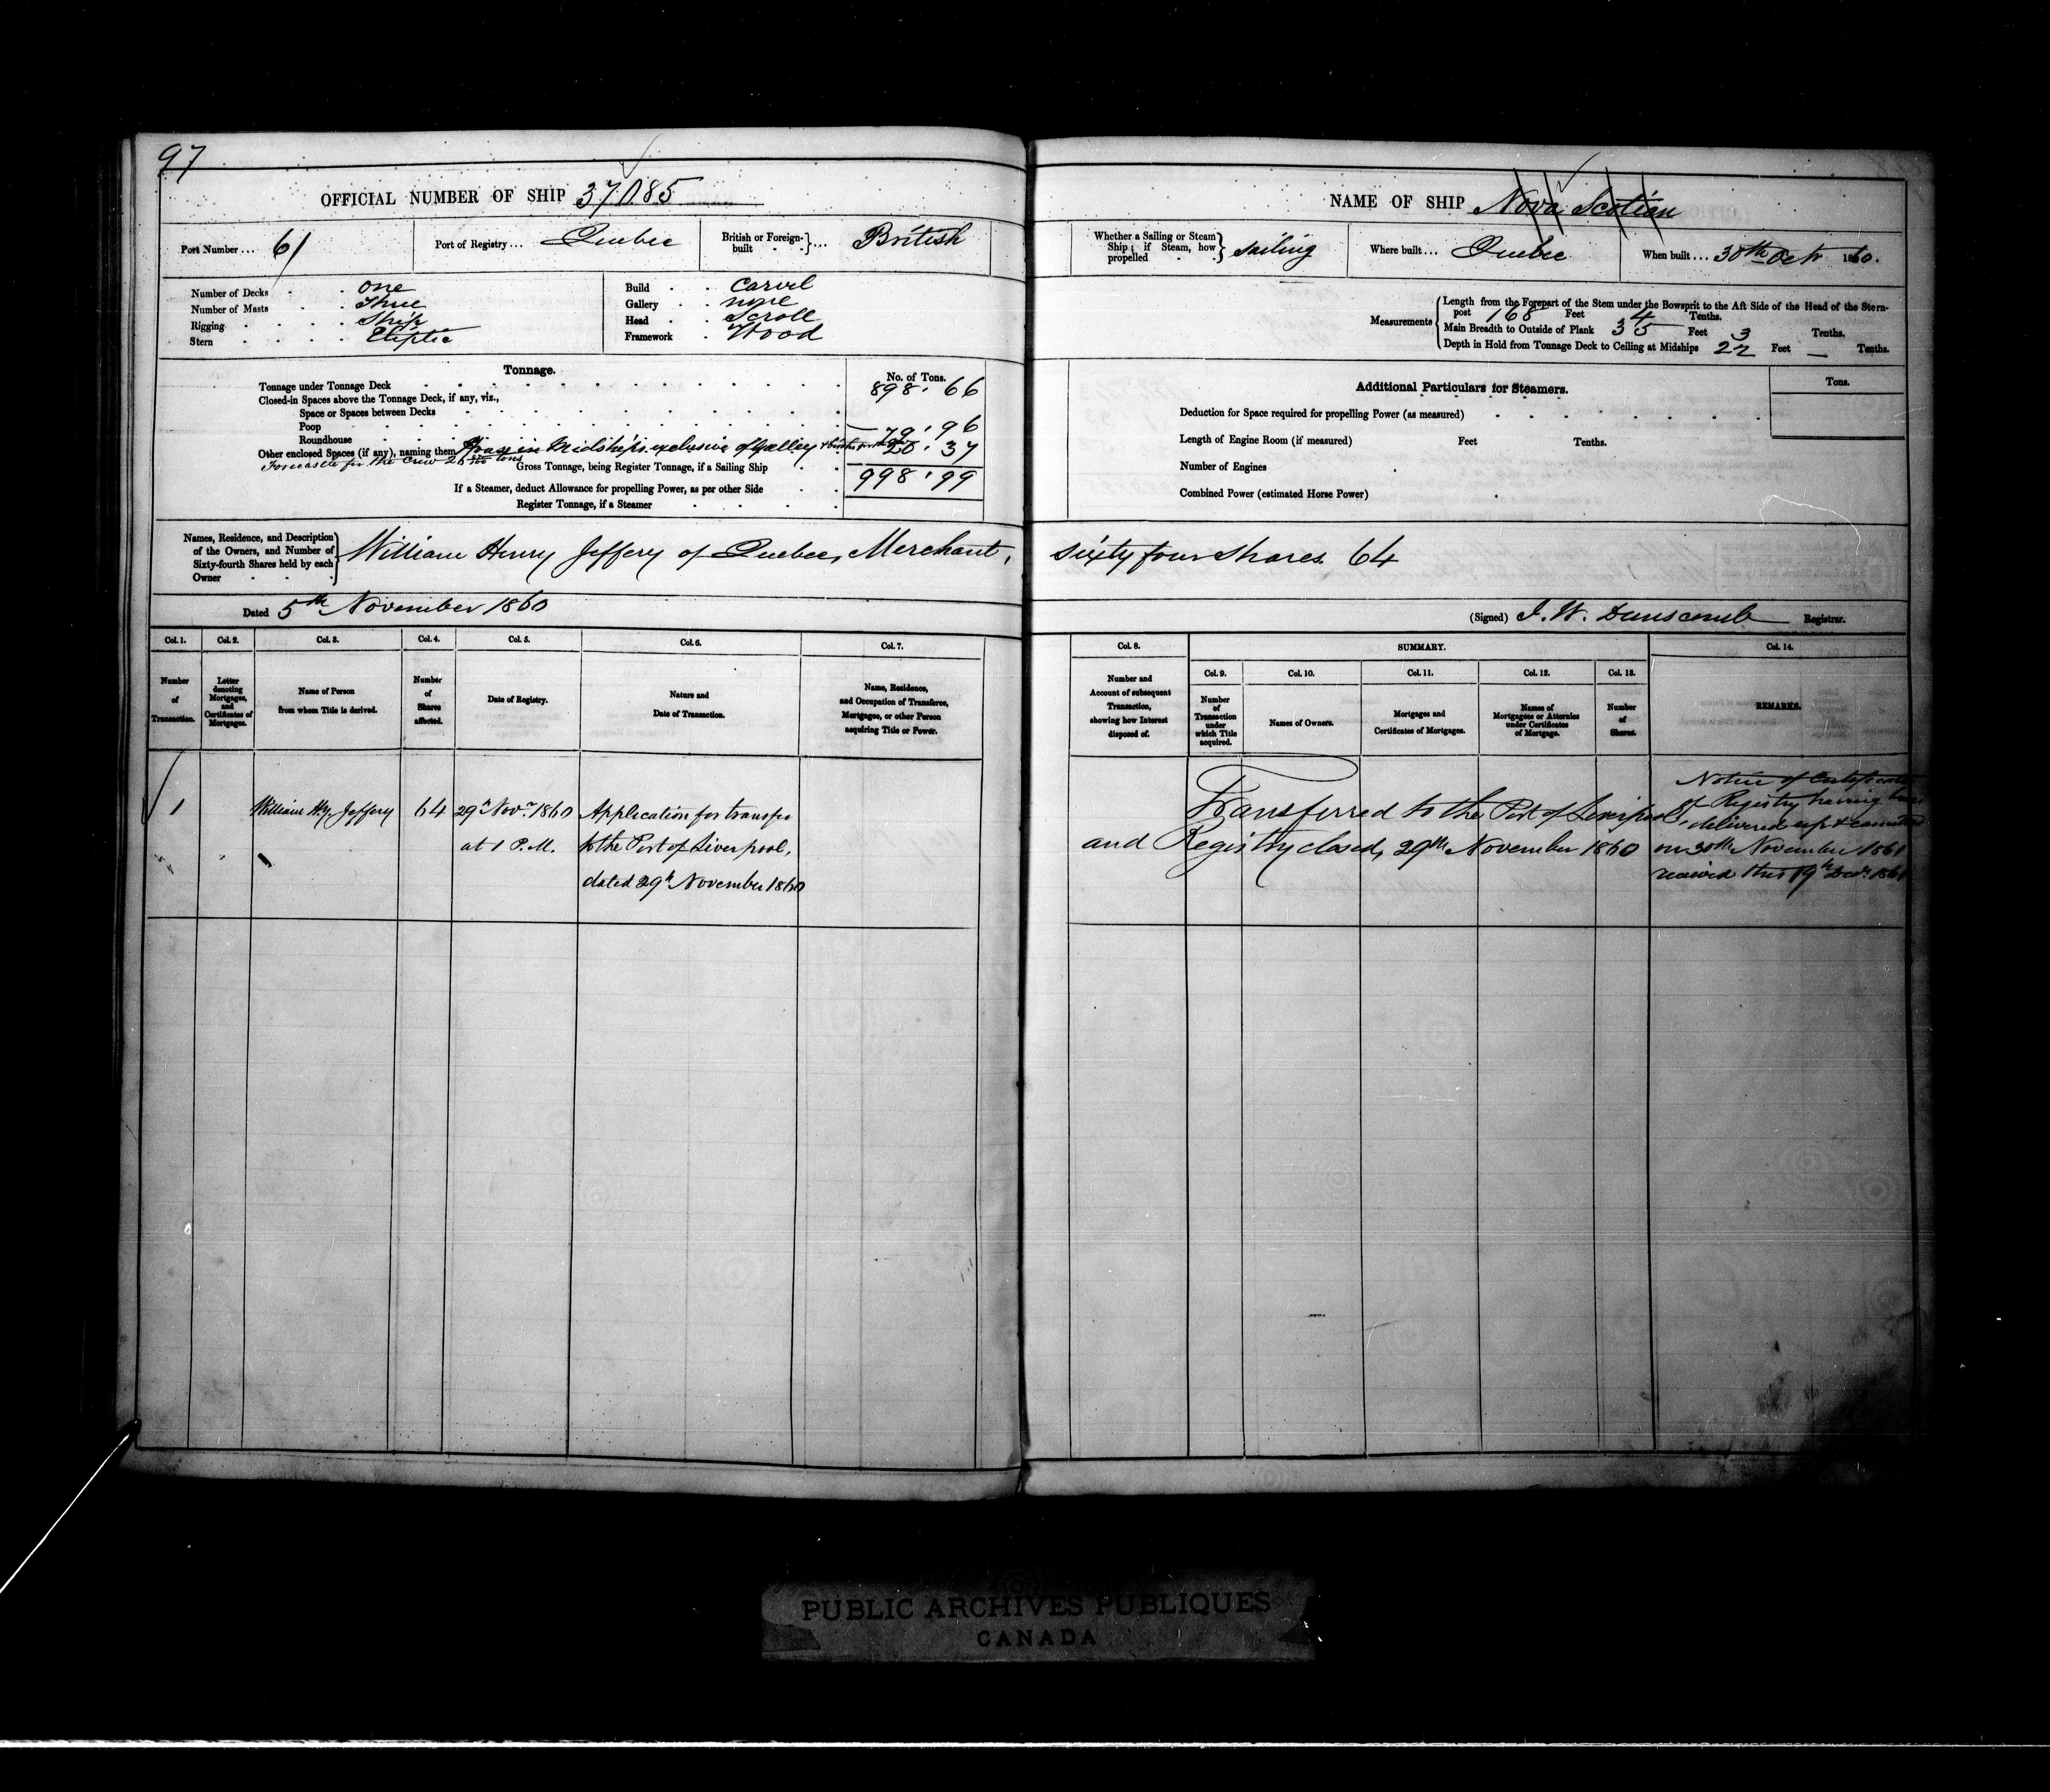 97
OFFICIAL NUMBER OF SHIP 37,085
Port Number ... 61
Port of Registry ... Quebec
British or Foreign-built ... British
Number of Decks one
Number of Masts Three
Rigging Ship
Stern Eliptic
Build Carvel
Gallery none
Head Scroll
Framework Wood
Tonnage.
No. of Tons.
Tonnage under Tonnage Deck 898.66
Closed-in Spaces above the Tonnage Deck, if any, viz.,
Space or Spaces between Decks
Poop
Roundhouse 79.96
Other enclosed Spaces (if any), naming them House in Midships exclusive of Galley 20.37
Forecastle for the Crew tons
Gross Tonnage, being Register Tonnage, if a Sailing Ship 998.99
If a Steamer, deduct Allowance for propelling Power, as per other Side
Register Tonnage, if a Steamer
Names, Residence, and Description of the Owners, and Number of Sixty-fourth Shares held by each Owner
William Henry Jeffery of Quebec, Merchant,
Dated 5th November 1860
Col. 1. Col. 2. Col. 3. Col. 4. Col. 5. Col. 6. Col. 7.
Number of Transaction.
Letter denoting Mortgages, and Certificates of Mortgages.
Name of Person from whom Title is derived.
Number of Shares affected.
Date of Registry.
Nature and Date of Transaction.
Name, Residence, and Occupation of Transferee, Mortgagee, or other Person acquiring Title or Power.
1 William Hy. Jeffery 64 29th Novr. 1860 Application for transfer
at 1 P.M. to the Port of Liverpool,
dated 29th November 1860
NAME OF SHIP Nova Scotian
Whether a Sailing or Steam Ship; if Steam, how propelled Sailing
Where built ... Quebec
When built ... 30th Octr 1860.
Measurements
Length from the Forepart of the Stem under the Bowsprit to the Aft Side of the Head of the Stern-
post 168 Feet 4 Tenths.
Main Breadth to Outside of Plank 35 Feet 3 Tenths.
Depth in Hold from Tonnage Deck to Ceiling at Midships 22 Feet — Tenths.
Additional Particulars for Steamers.
Tons.
Deduction for Space required for propelling Power (as measured)
Length of Engine Room (if measured) Feet Tenths.
Number of Engines
Combined Power (estimated Horse Power)
Sixty four Shares. 64
(Signed) J. W. Dunscomb Registrar.
Col. 8. SUMMARY. Col. 14.
Col. 9. Col. 10. Col. 11. Col. 12. Col. 13.
Number and Account of subsequent Transaction, showing how Interest disposed of.
Number of Transaction under which Title acquired.
Names of Owners.
Mortgages and Certificates of Mortgages.
Names of Mortgagees or Attornies under Certificates of Mortgage.
Number of Shares.
REMARKS.
Transferred to the Port of Liverpool
and Registry closed, 29th November 1860
Notice of Certificate
of Registry having been
delivered up & cancelled
on 30th November 1861
received this 19th Decr. 1861
PUBLIC ARCHIVES PUBLIQUES
CANADA